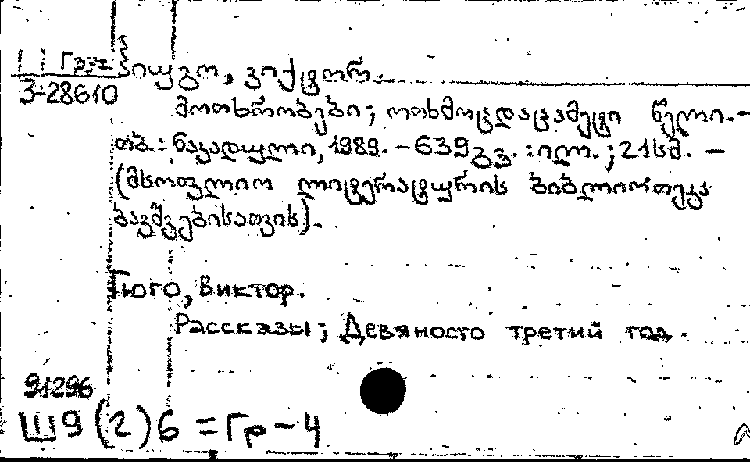 Груз
3-28610
ჰიუგო, ვიქტორ.
მოთხრობები; ოთხმოცდაცამეტი წელი. –
თბ.: ნაკადული, 1989. – 639გვ. : ილ. ; 21სმ. –
(მსოფლიო ლიტერატურის ბიბლიოთეკა
ბავშვებისათვის).
Гюго, Виктор.
Рассказы ; Девяносто третий год.
91296
Ш9(2)6 = Гр – 4